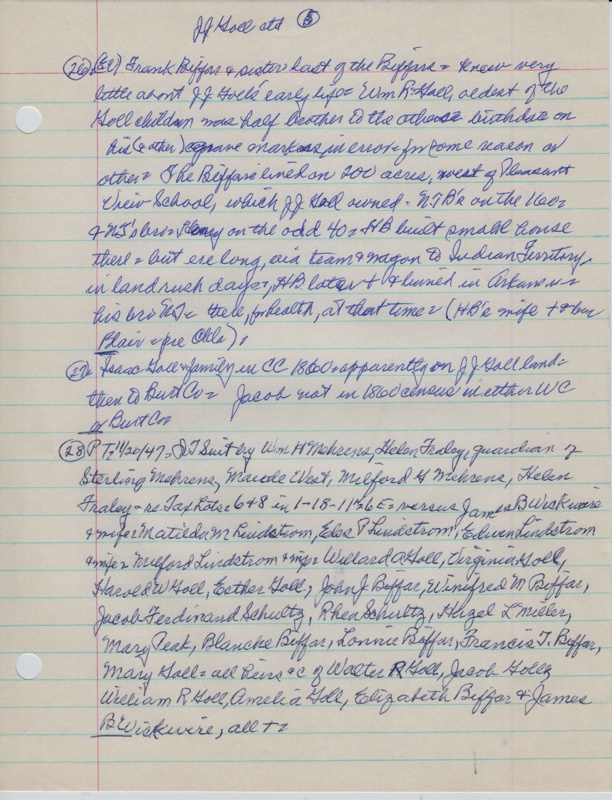 JJ Goll ctd (5)
(26) (EU) Frank Biffar & sister last of the Biffars = knew very
little about JJ Goll's early life = Wm R Goll, oldest of the
Goll children was half brother to the others = birthdate on
his (& other) grave markers in error = for some reason or
other = The Biffars lived on 200 acres, west of Pleasant
View School, which JJ Goll owned = NTB's on the 160 =
& NT's bro = on the odd 40 = HB built small house
there = but ere long, via team & wagon to Indian Territory,
in landrush days =, HB later + & buried in Arkansas =
his bro NT = there, for health, at that time = (HB's wife + & bur
Blair = pre Okla) =
(27) Isaac Goll & family in CC 1860 = apparently on JJ Goll land =
then to Burt Co = Jacob not in 1860 census in either WC
or Burt Co =
(28) PT 11/20/47 = QT Suit by Wm H Mehrens, Helen Fraley, guardian of
Sterling Mehrens, Maude West, Milford G Mehrens, Helen
Fraley = re Tax Lots 6 & 8 in 1-18-11 = versus James B Wickwire
& wife = Matilda M Lindstrom, Eles P Lindstrom, Edwin Lindstrom
& wife = Milford Lindstrom & wife = Willard A Goll, Virginia Goll,
Harold W Goll, Esther Goll, John J Biffar, Winifred M Biffar,
Jacob Ferdinand Schultz, Rhea Schultz, Hazel L Miller,
Mary Peak, Blanche Biffar, Lonnie Biffar, Francis T. Biffar,
Mary Goll = all heirs &c of Walter R Goll, Jacob Goll,
William R Goll, Amelia Goll, Elizabeth Biffar & James
B Wickwire, all + =